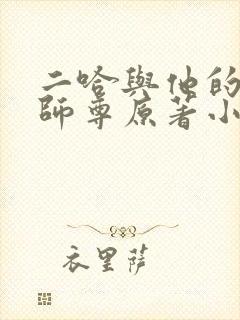 二哈與他的
師尊原著小
衣里薩